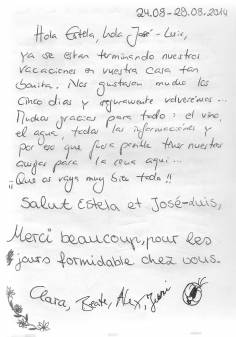 24.08-29.08.2014
Hola Estela, hola José-Luis,
ya se están terminando nuestras
vacaciones en vuestra casa tan
bonita. Nos gustaron mucho los
cinco días y seguramente volveremos...
Muchas gracias para todo: el vino,
el agua, todas las informaciones y
por que fuera posible tener nuestros
amigos para la cena aquí...
¡¡Que os vaya muy bien todo!!
Salut Estela et José-Luis,
Merci beaucoup, pour les
jours formidable chez vous.
Clara, Beate, Alex,